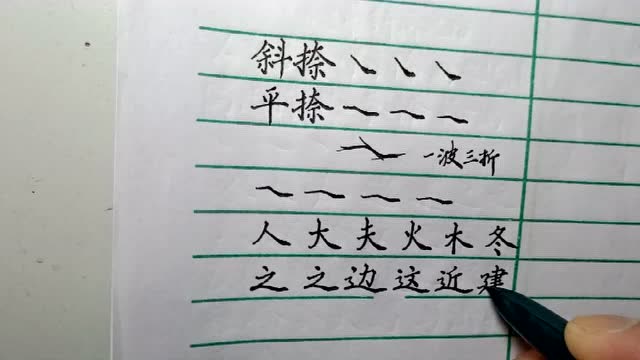 斜捺
平捺
一波三折
人大夫火木冬
之之边这近建